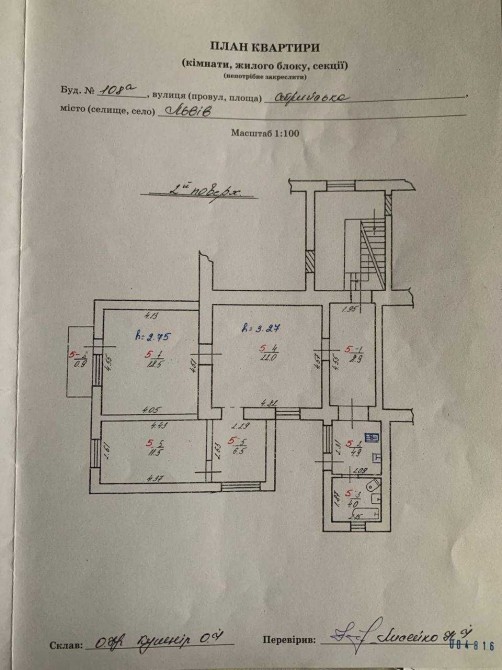 ПЛАН КВАРТИРИ
(кімнати, жилого блоку, секції)
(непотрібне закреслити)
Буд. № 108а, вулиця (провул, площа) Стрийська
місто (селище, село) Львів
Масштаб 1:100
2й поверх
1.95
4.13
h=2.75
h=3.27
4.55
4.57
4.57
4.55
5-7
18.5
5-4
22.0
5-1
8.9
0.9
4.05
4.43
4.82
2.29
2.61
2.63
5-6
11.5
5-5
6.5
5-2
4.9
2.08
4.37
5-3
4.0
Склав:
Кушнір О Я
Перевірив:
004816